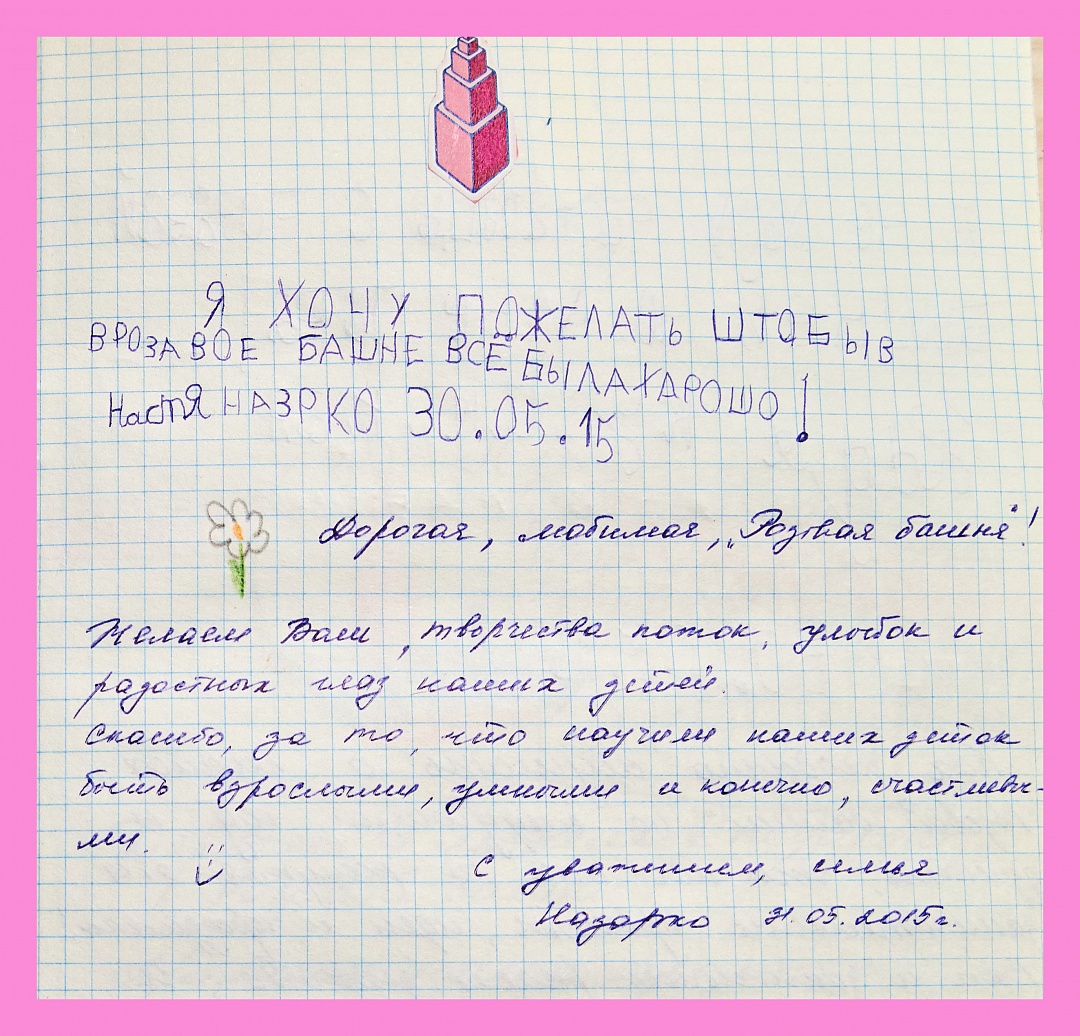 Я ХОЧУ ПОЖЕЛАТЬ ШТОБЫВ
ВРОЗАВОЕ БАШНЕ ВСЁ БЫЛАХАРОШО!
НастЯ НАЗРКО 30.05.15
Дорогая, любимая, „Розовая башня"!
Желаем Вам, творчества поток, улыбок и
радостных глаз наших детей.
Спасибо, за то, что научили наших деток
быть взрослыми, умными и конечно, счастливы-
ми.
С уважением, семья
Назарко 31.05.2015г.